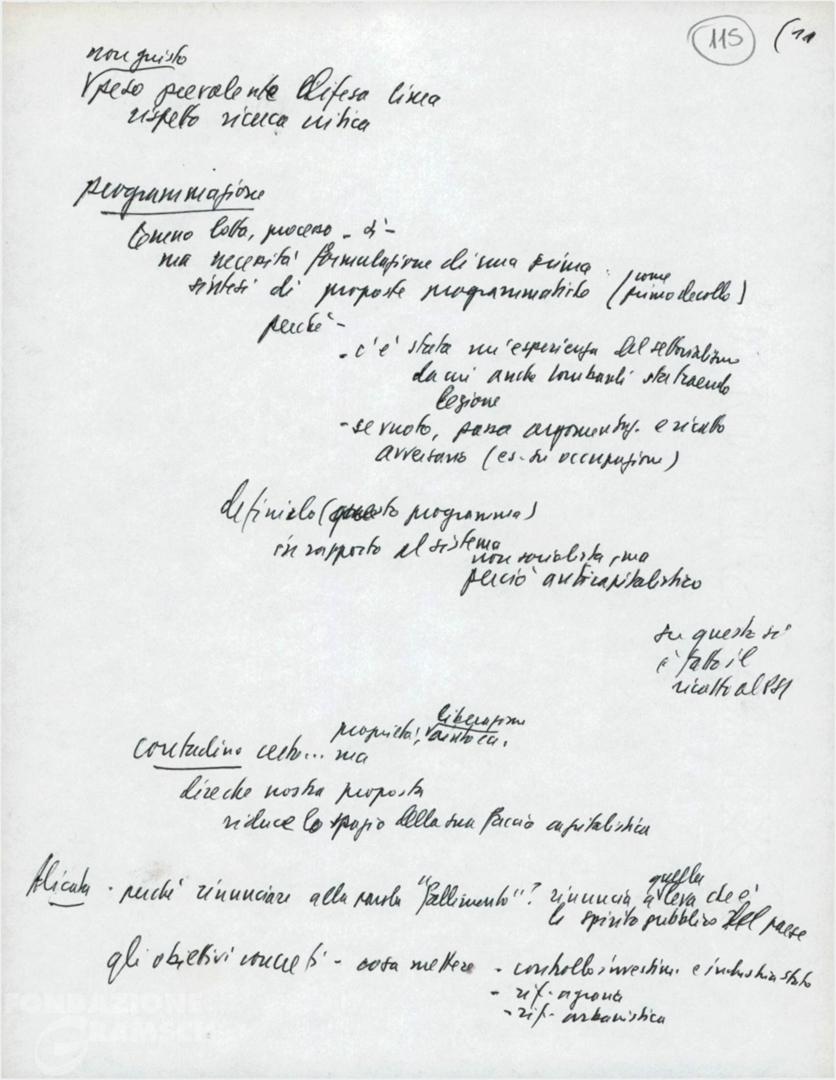 115 (11
non giusto
peso prevalente difesa linea
rispetto ricerca critica
programmazione
terreno lotta, processo - sì -
ma necessità formulazione di una prima
sintesi di proposte programmatiche (come primo decollo)
perché -
- c'è stata un'esperienza del settorialismo
da cui anche Lombardi sta traendo
lezione
- se vuoto, passa argomentaz. e ricatto
avversario (es. su occupazione)
definirlo (questo programma)
in rapporto al sistema
non socialista, ma
perciò anticapitalistico
su questo si
è fatto il
ricatto al PSI
liberazione
proprietà,
contadino certo... ma
dire che nostra proposta
riduce lo spazio della sua faccia capitalistica
Alicata - perché rinunciare alla parola "fallimento"? rinuncia a quella leva che è
lo spirito pubblico del paese
gli obiettivi concreti - cosa mettere - controllo investim. e industria stato
- rif. agraria
- rif. urbanistica
FONDAZIONE
GRAMSCI